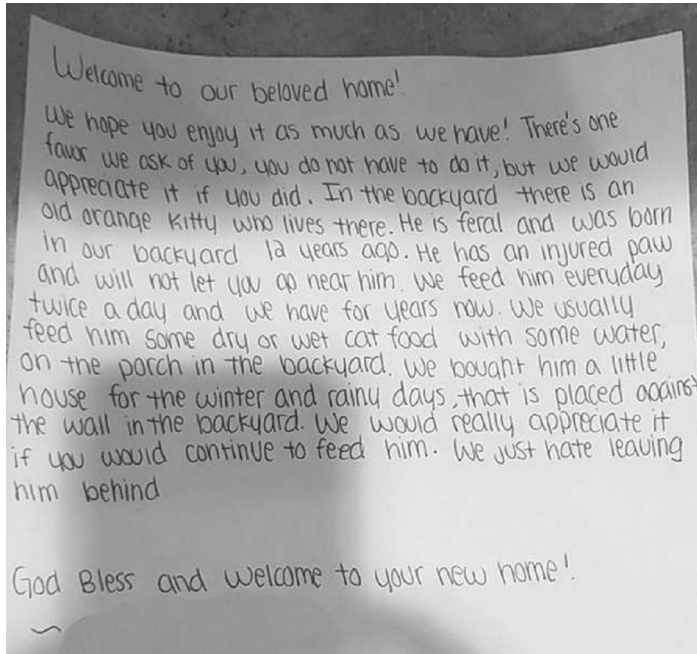 Welcome to our beloved home!
We hope you enjoy it as much as we have! There's one
favor we ask of you, you do not have to do it, but we would
appreciate it if you did. In the backyard there is an
old orange kitty who lives there. He is feral and was born
in our backyard 12 years ago. He has an injured paw
and will not let you go near him. We feed him everyday
twice a day and we have for years now. We usually
feed him some dry or wet cat food with some water,
on the porch in the backyard. We bought him a little
house for the winter and rainy days, that is placed against
the wall in the backyard. We would really appreciate it
if you would continue to feed him. We just hate leaving
him behind
God Bless and welcome to your new home!
~